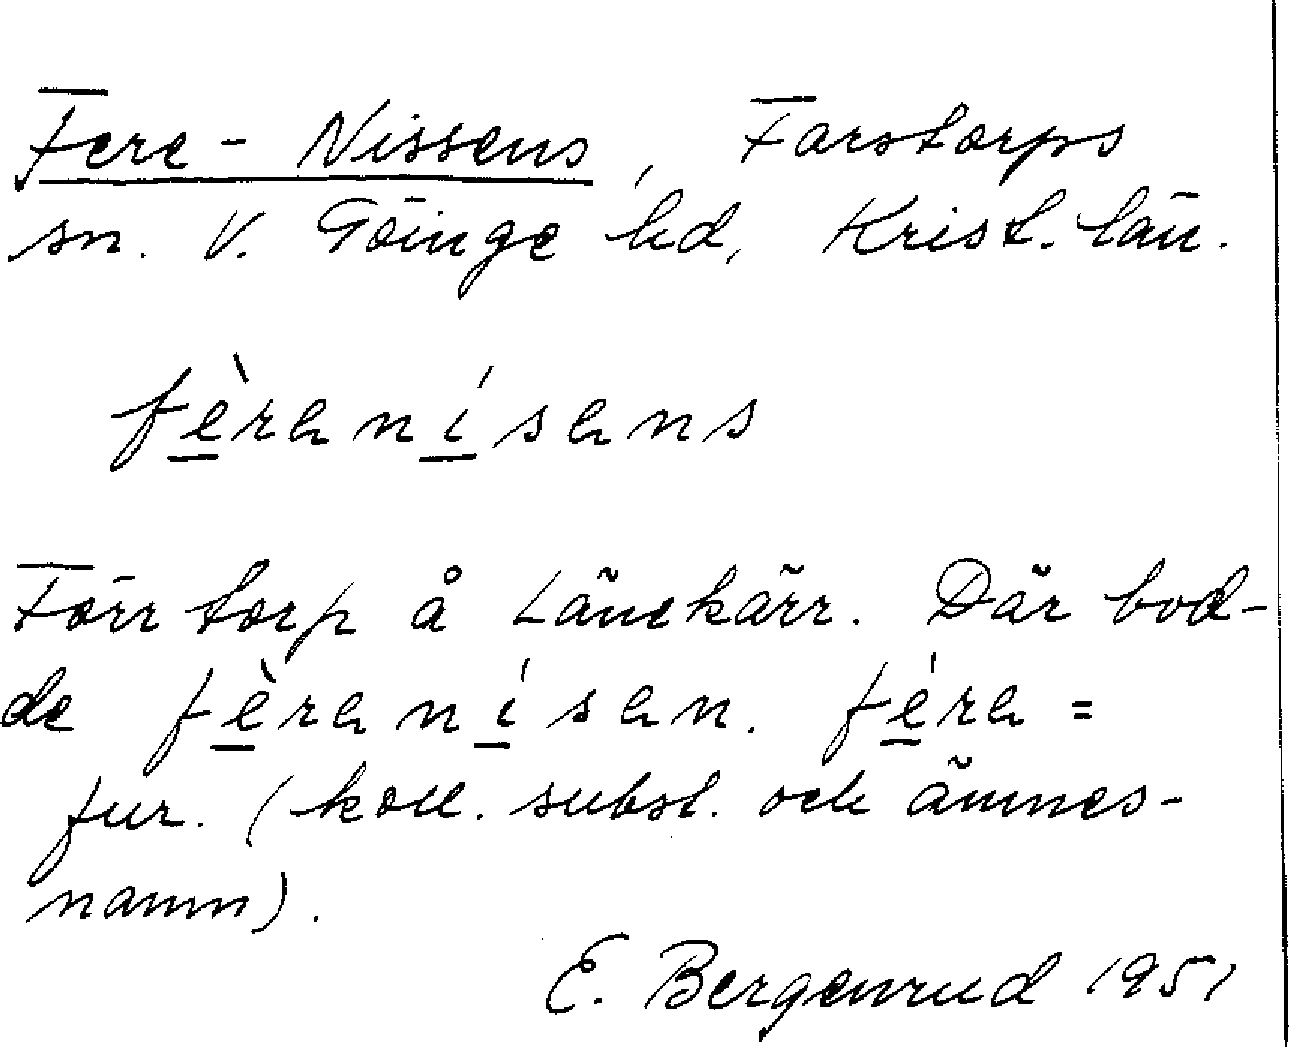 Fere-Nissens, Farstorps
sn. V. Göinge hd, Krist. län.
fèranísans
Förr torp å Länekärr. Där bod-
de fèranísan. féra =
fur. (koll. subst. och ämnes-
namn).
E. Bergenrud 1951